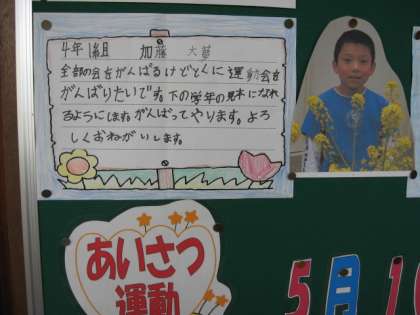 4年1組 加藤 大
全部の会をがんばるけどとくに運動会を
がんばりたいです。下の学年の見本になれ
るようにしますがんばってやります。よろ
しくおねがいします。
あいさつ
運動
5月1